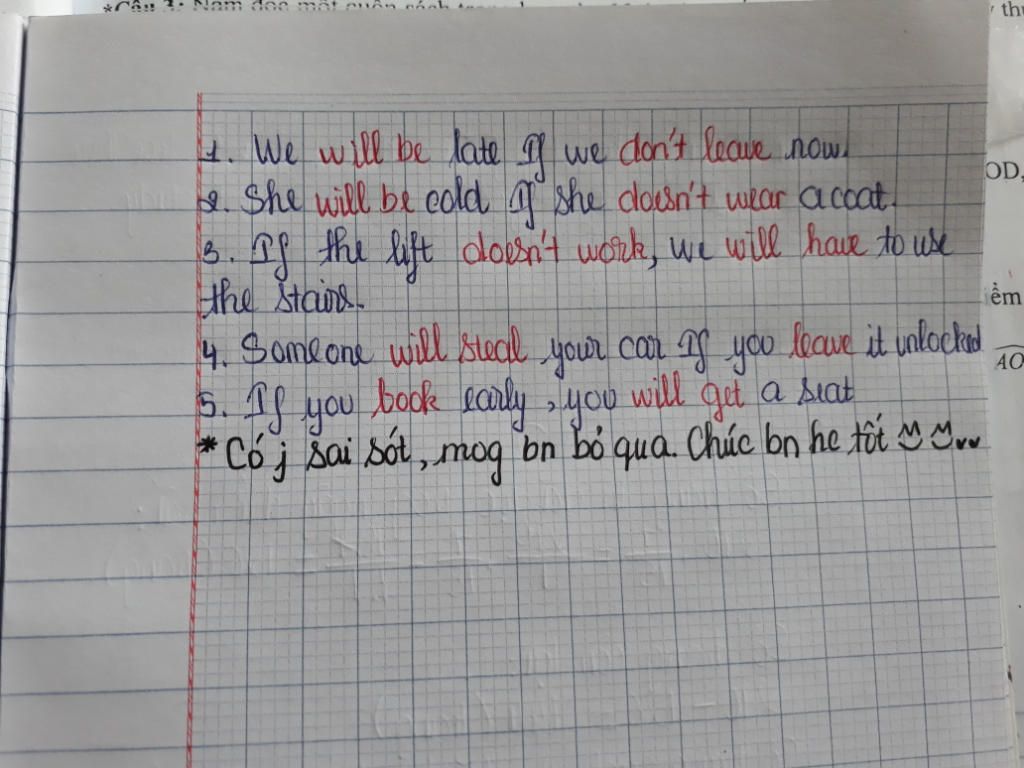 *Câu 3: Nam đọc một cuốn sách
1. We will be late If we don't leave now.
2. She will be cold If she doesn't wear a coat.
3. If the lift doesn't work, we will have to use
the stairs.
4. Someone will steal your car If you leave it unlocked
5. If you book early, you will get a seat
* Có j sai sót, mog bn bỏ qua. Chúc bn hc tốt
OD,
AO